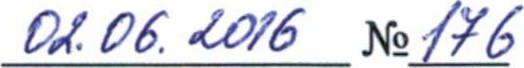 02.06.2016 № 176